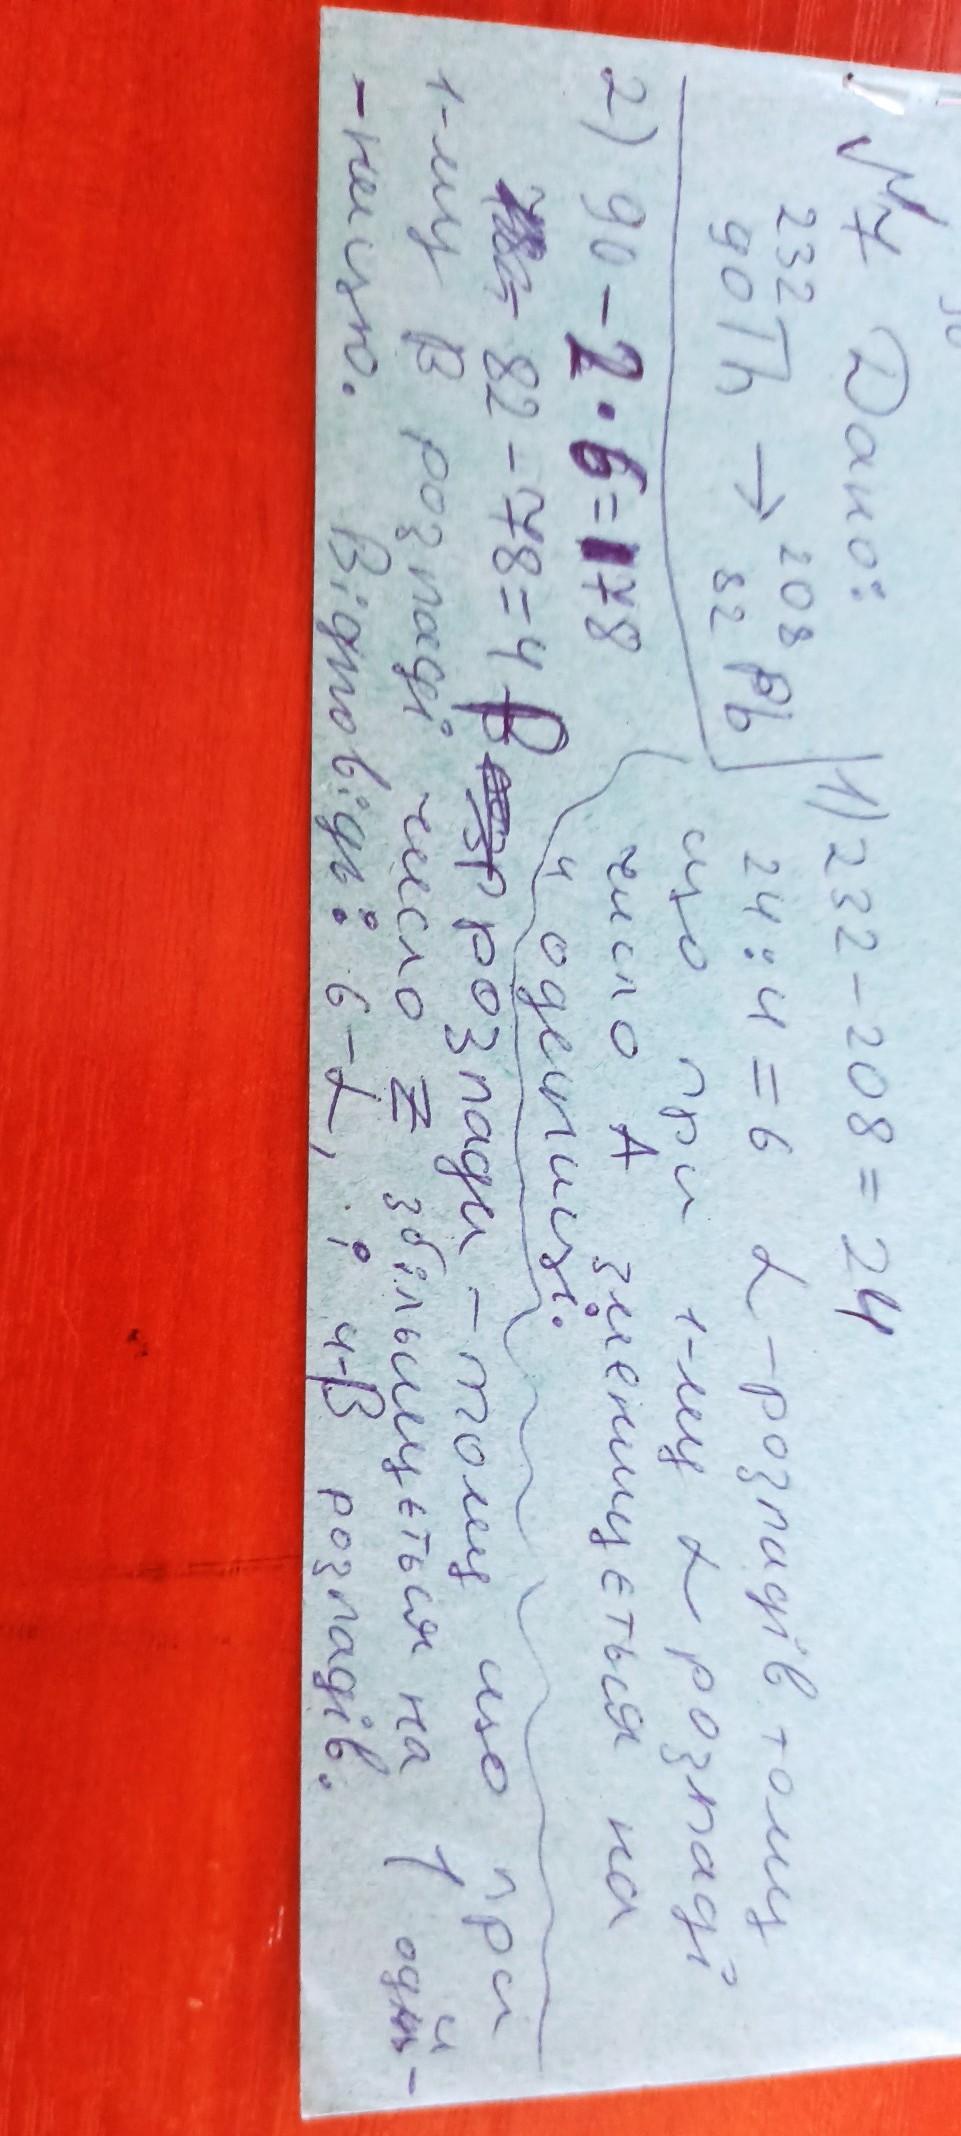 №7 Дано:
232 90Th → 208 82 Pb
1) 232-208=24
24:4=6 α-розпадів тому
що при 1-му α розпаді
число А зменшується на
4 одениці.
2) 90-2·6=78
82-78=4 β розпади - тому що при
1-му β розпаді число Z збільшується на 1 оди-
-ницю. Відповідь: 6-α, і 4-β розпадів.